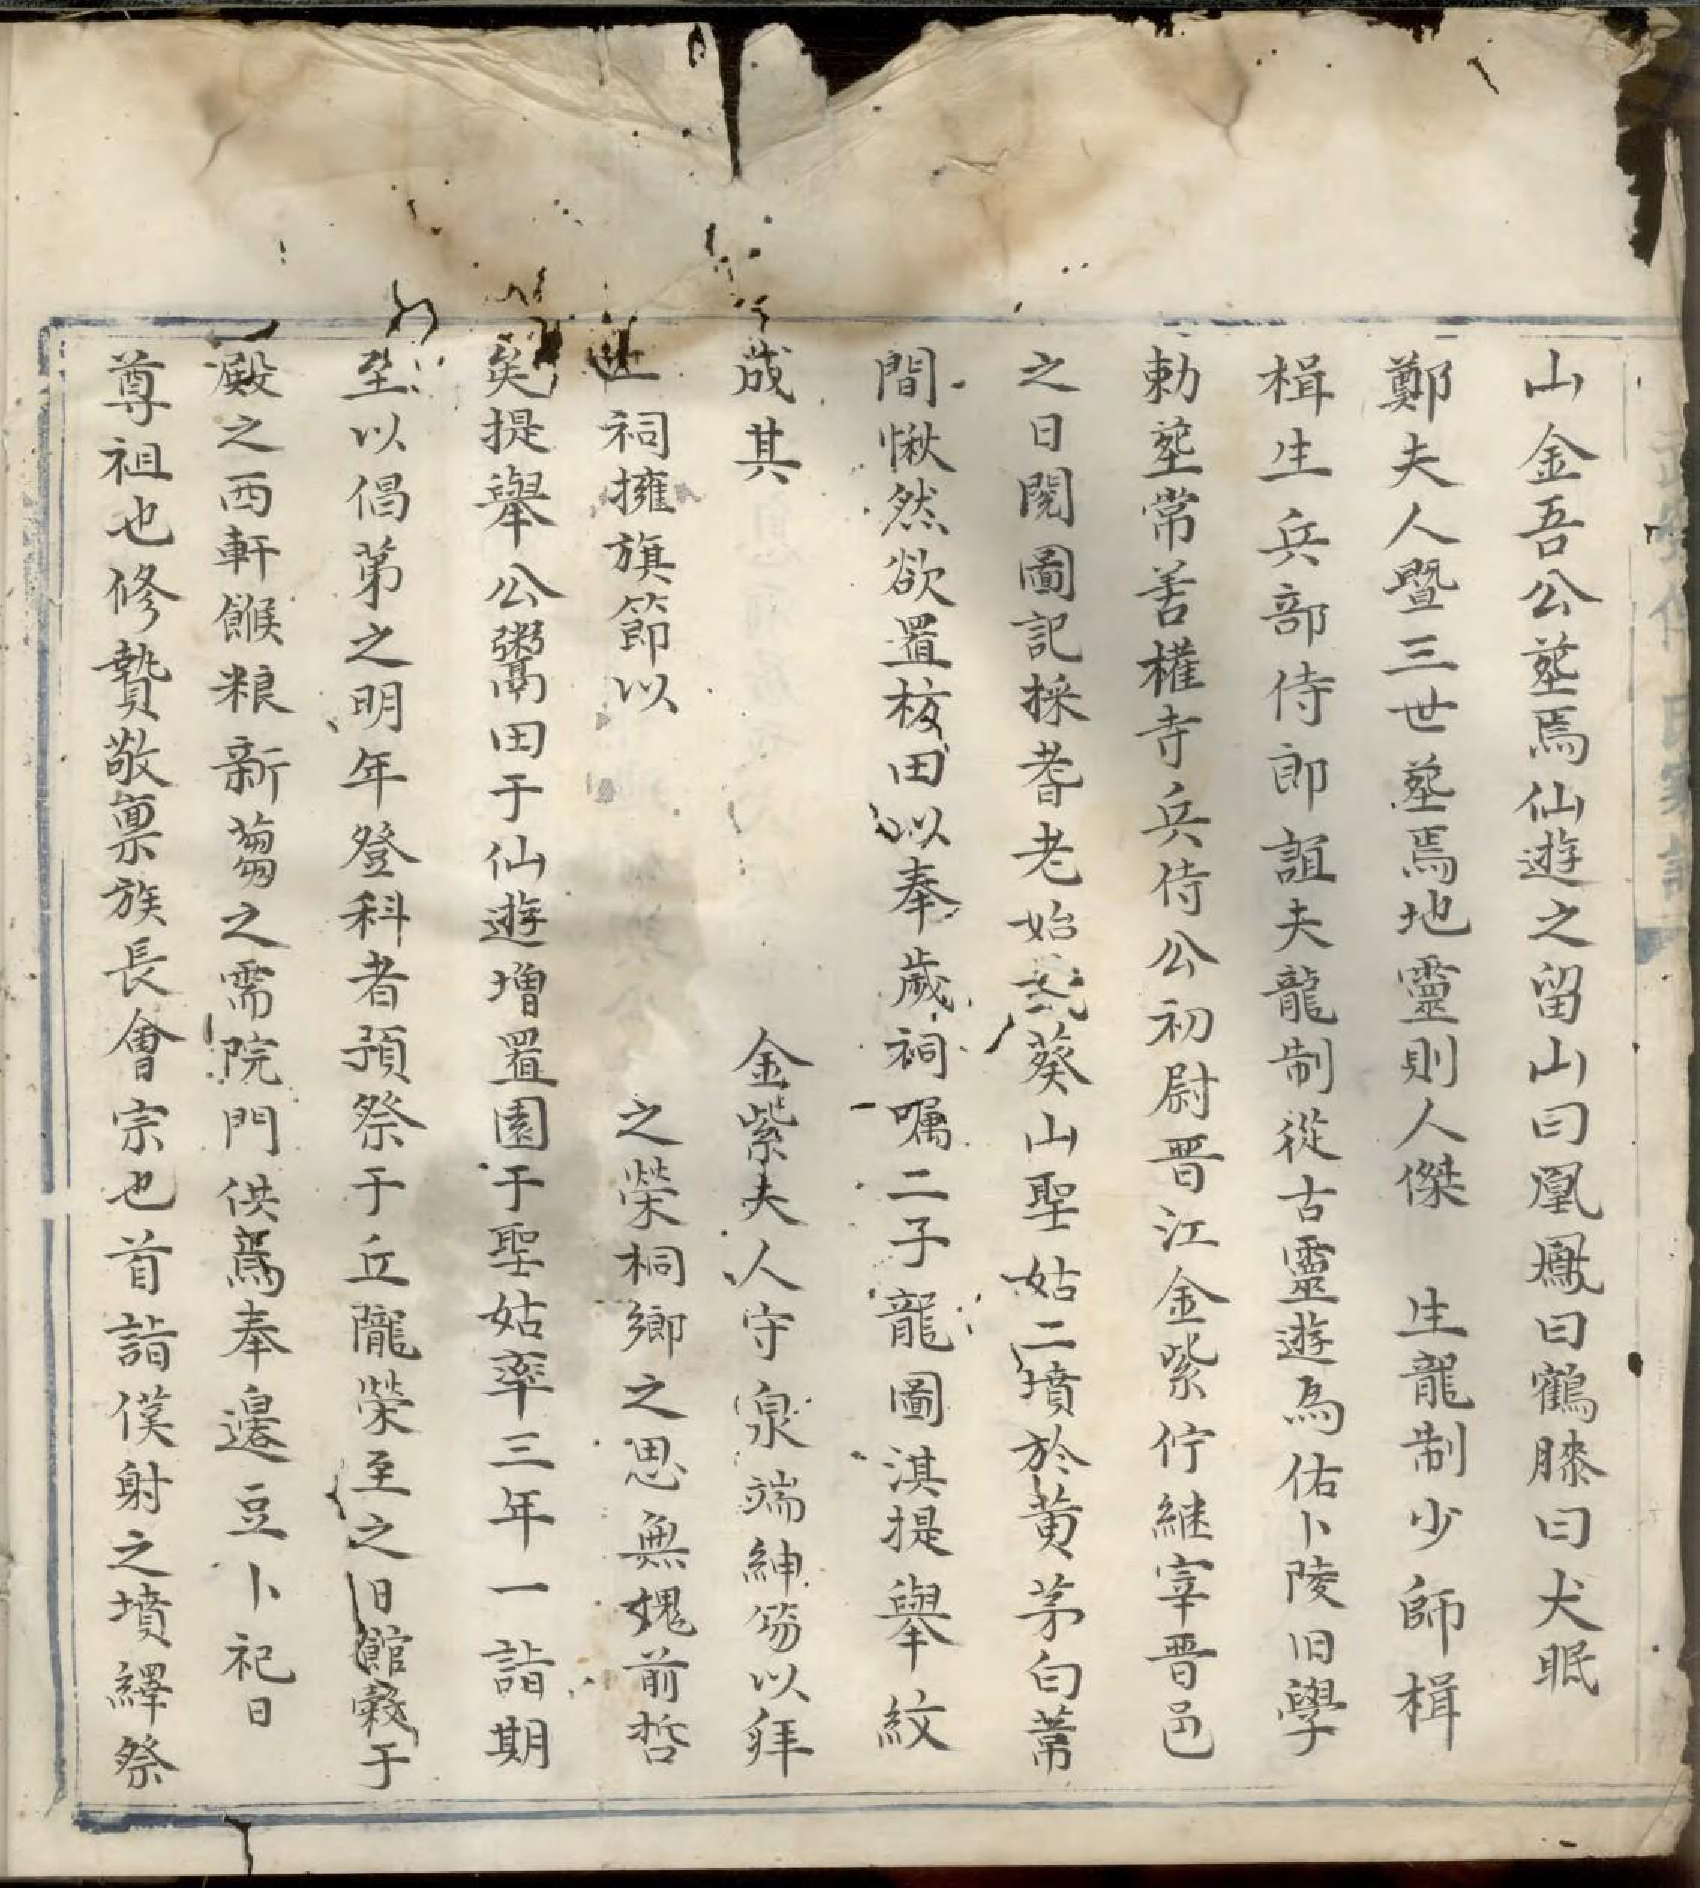 山金吾公塟焉仙遊之留山曰凰鳳曰鶴膝曰犬眠
鄭夫人暨三世塟焉地靈則人傑 生龍制少師楫
楫生兵部侍郎誼夫龍制從古靈遊為佑卜陵旧學
勅塟常善權寺兵侍公初尉晋江金紫佇継宰晋邑
之日閱圖記採耆老始葵山聖姑二墳於黄茅白葦
間愀然欲置救田以奉歲祠嘱二子龍圖淇提舉紋
成其 金紫夫人守泉端紳笏以拜
祠擁旗節以 之榮桐鄉之思無媿前哲
矣提舉公鬻田于仙遊增置園于聖姑率三年一詣期
至以倡第之明年登科者預祭于丘隴榮至之旧館穀于
殿之西軒餱粮新蒭之需院門供焉奉邉豆卜祀日
尊祖也修贄敬禀族長會宗也首詣僕射之墳繹祭